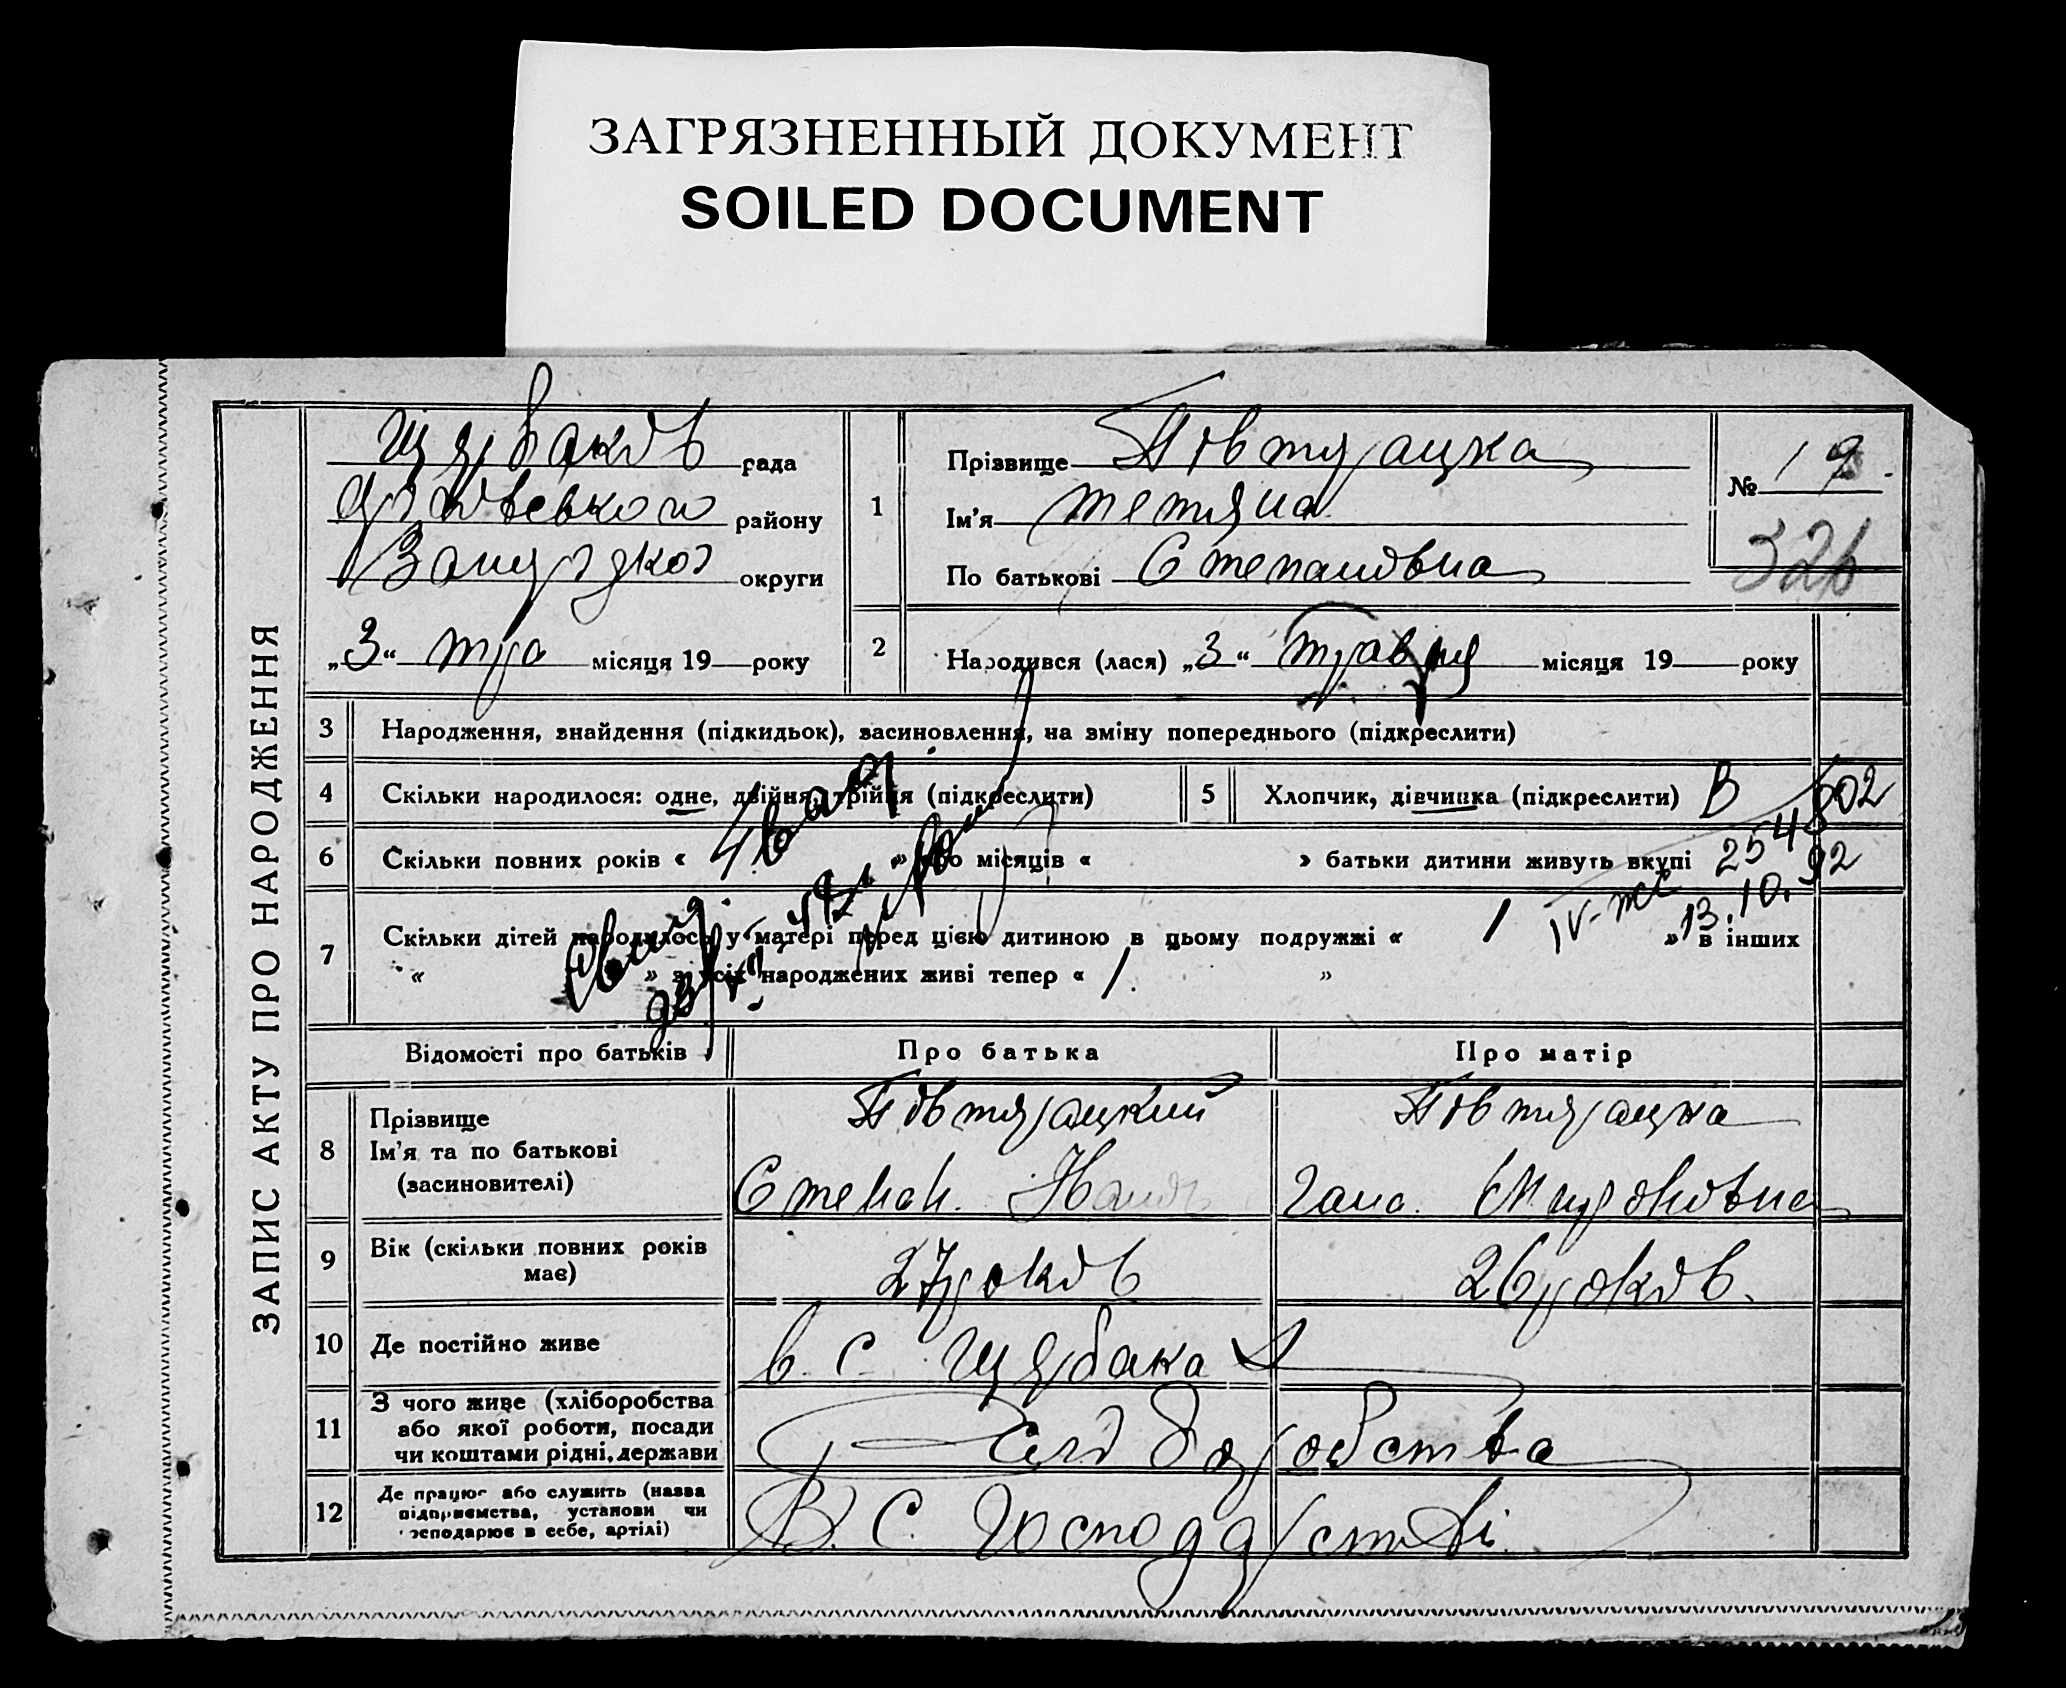 ЗАГРЯЗНЕННЫЙ ДОКУМЕНТ
SOILED DOCUMENT
ЗАПИС АКТУ ПРО НАРОДЖЕННЯ
Щербаков рада
району
округи
„3“ тра місяця 19 року
1
Прізвище Повтурацка
Ім'я Тетяна
По батькові Степановна
№ 19
326
2 Народився (лася) „3“ травня місяця 19 року
3 Народження, знайдення (підкидьок), засиновлення, на зміну попереднього (підкреслити)
4 Скільки народилося: одне, двійня, трійня (підкреслити)
5 Хлопчик, дівчинка (підкреслити) В 502
6 Скільки повних років « » або місяців « » батьки дитини живуть вкупі
254
13.10.92
7 Скільки дітей народилось у матері перед цією дитиною в цьому подружжі « 1 » в інших
« » з усіх народжених живі тепер « 1 »
Відомості про батьків Про батька Про матір
8 Прізвище
Ім'я та по батькові
(засиновителі)
Повтурацкий
Степан
Повтурацка
Гана
9 Вік (скільки повних років має) 27 роков 26 роков.
10 Де постійно живе в. с. Щербака
11 З чого живе (хліборобства
або якої роботи, посади
чи коштами рідні, держави
12 Де працює або служить (назва
підприємства, установи чи
господарює в себе, артілі)
В. С. Господарстві